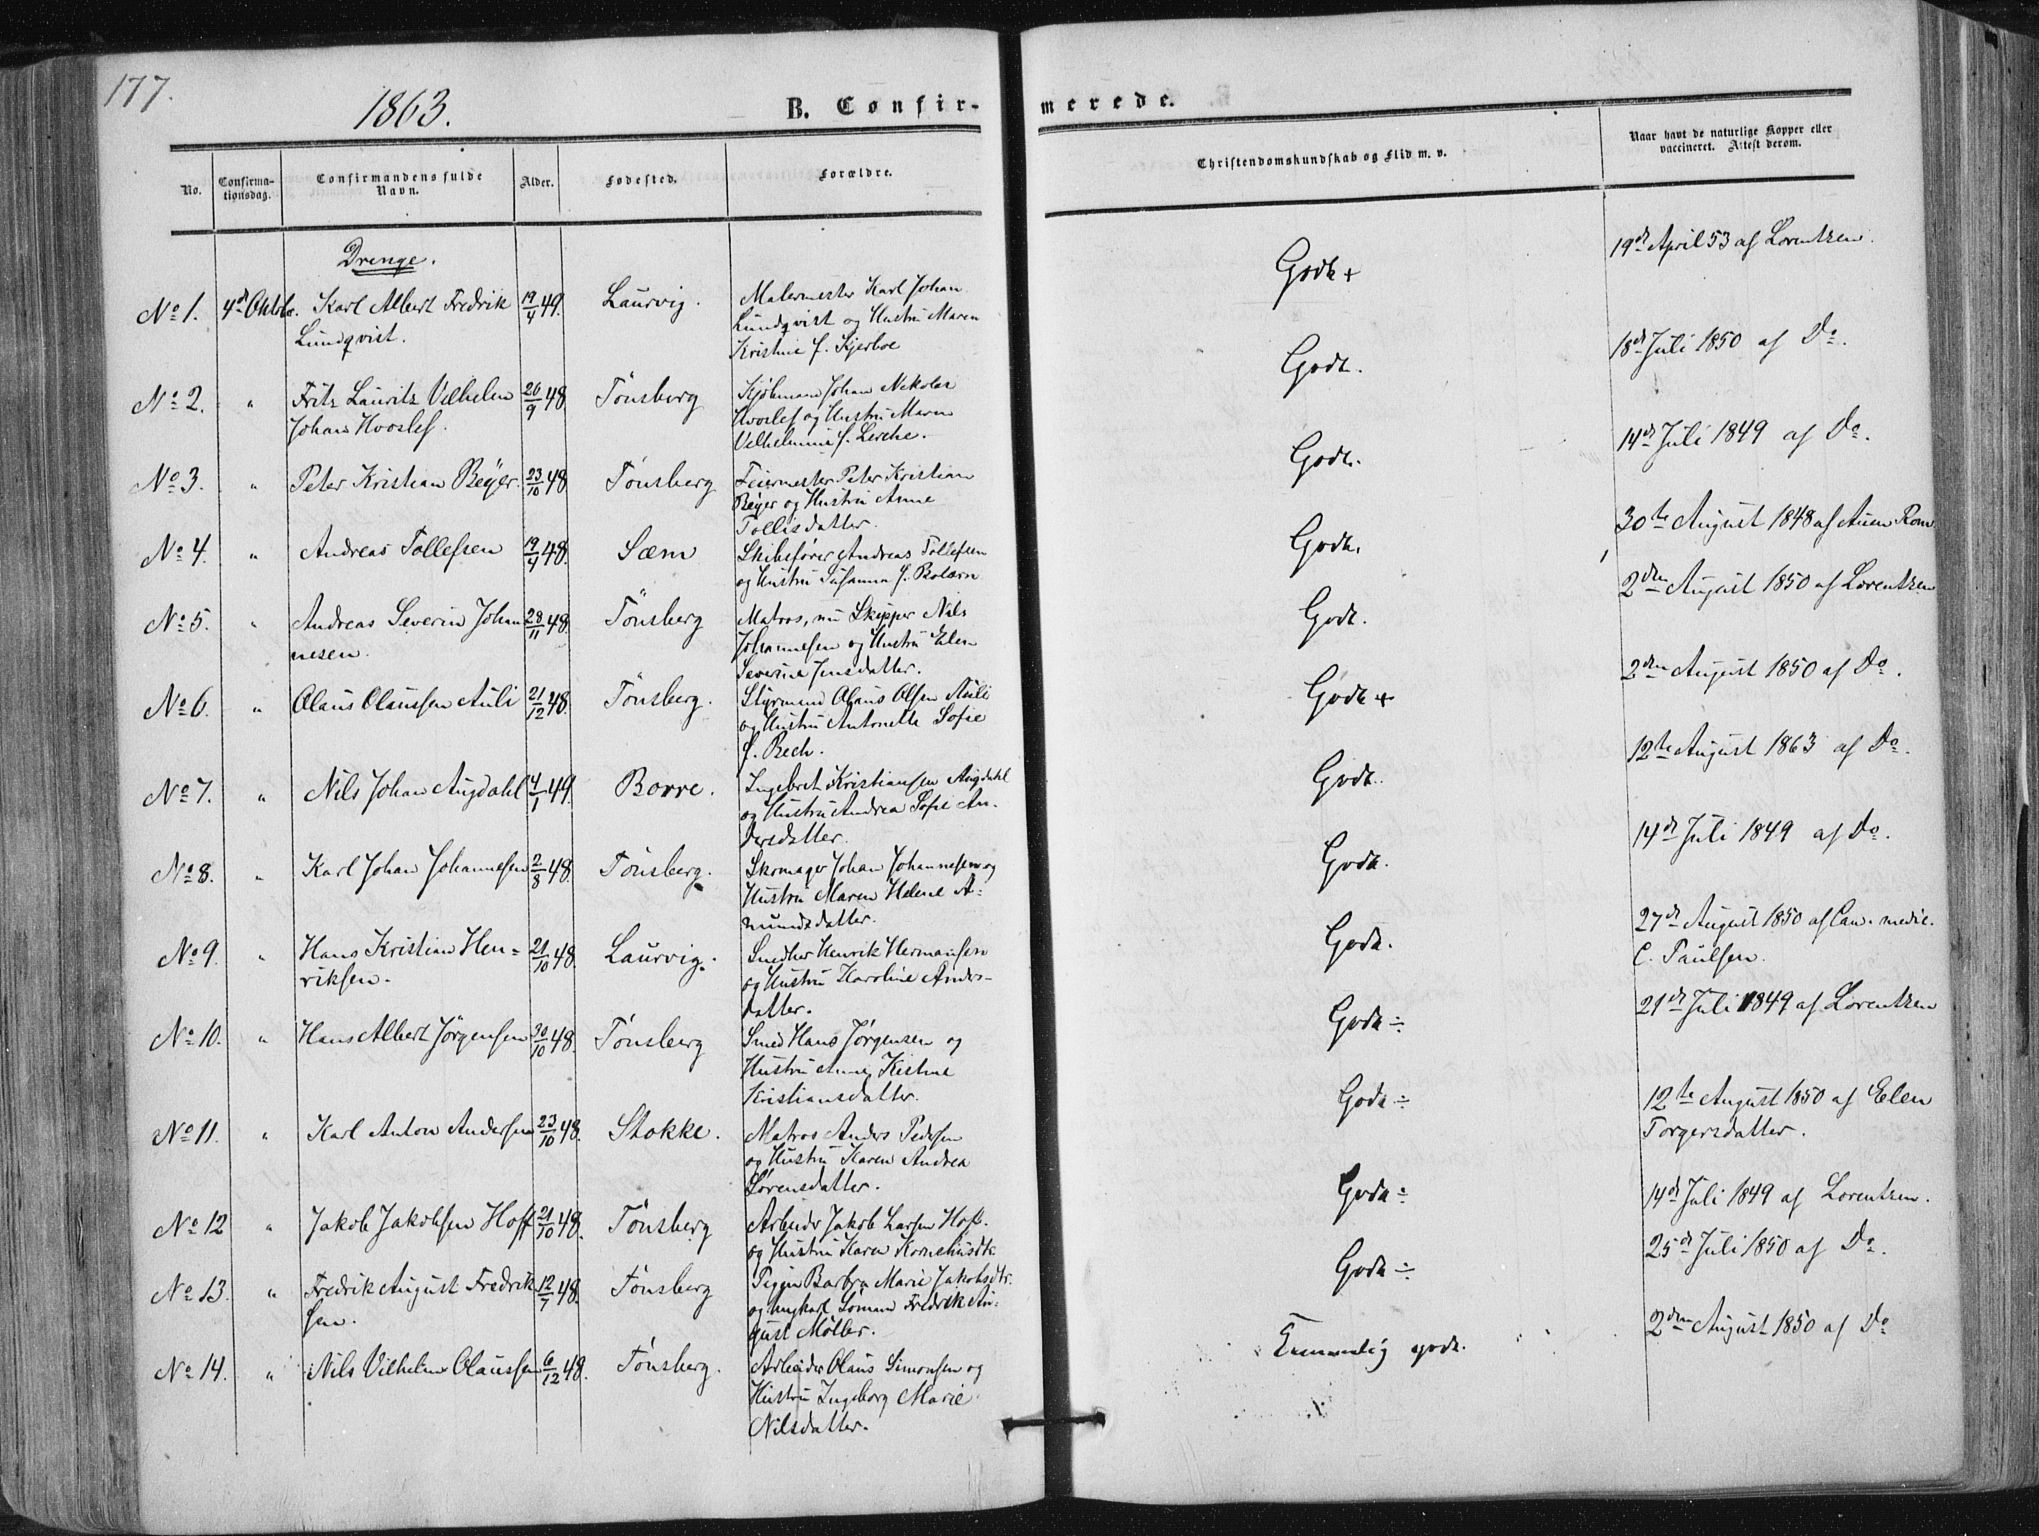 177.
1863.
B. Confir-
merede.
No.
Confirma-
tionsdag.
Confirmandens fulde
Navn.
Alder.
Fødested.
Forældre.
Christendomskundskab og Flid m. v.
Naar havt de naturlige Kopper eller
vaccineret. Attest derom.
Drenge.
No 1. 4de Oktbr. Karl Albert Fredrik 19/4 49. Laurvig. Malermester Karl Johan Godt + 19de April 53 af Lorentzen.
Lundqvist. Lundqvist og Hustru Maren
Kristine f. Kjerboe
No 2. " Fritz Lauritz Vilhelm 26/9 48. Tönsberg Kjøbmand Johan Nikolai Godt. 18de Juli 1850 af Do.
Johan Hvoslef. Hvoslef og Hustru Maren
Vilhelmine f. Lerche.
No 3. " Peter Kristian Beÿer. 23/10 48 Tönsberg Feiermester Peter Kristian Godt. 14de Juli 1849 af Do.
Beÿer og Hustru Anne
Tollisdatter.
No 4. " Andreas Tollefsen 19/9 48. Sæm Skibsfører Andreas Tollefsen Godt. 30te August 1848 af Rom
og Hustru Susanna f. Bolærn
No 5. " Andreas Severin Johan 28/11 48. Tönsberg Matros, nu Skipper Nils Godt. 2den August 1850 af Lorentzen
nesen. Johannesen og Hustru Elen
Severine Jensdatter.
No 6. " Olaus Olaussen Auli 21/12 48. Tönsberg. Styrmand Olaus Olsen Auli Godt + 2den August 1850 af Do.
og Hustru Antonette Sofie
f. Bech.
No 7. " Nils Johan Augdahl 4/1 49. Borre. Ingebret Kristiansen Augdahl Godt. 12te August 1863 af Do.
og Hustru Andrea Sofie An-
dersdatter.
No 8. " Karl Johan Johannesen 2/8 48. Tönsberg. Skomager Johan Johannesen og Godt. 14de Juli 1849 af Do.
Hustru Maren Helene A-
mundsdatter.
No 9. " Hans Kristian Hen- 21/10 48. Laurvig. Snedker Henrik Hermansen Godt. 27de August 1850 af Can. medic.
riksen. og Hustru Karoline Anders- C. Paulsen.
datter.
No 10. " Hans Albert Jörgensen 30/10 48. Tönsberg Smed Hans Jörgensen og Godt ÷ 21de Juli 1849 af Lorentzen
Hustru Anne Kistine
Kristiansdatter.
No 11. " Karl Anton Andersen 23/10 48. Stokke. Matros Anders Pedersen Godt ÷ 12te August 1850 af Elen
og Hustru Karen Andrea Torgersdatter.
Sörensdatter.
No 12 " Jakob Jakobsen Hoff 21/10 48. Tönsberg Arbeider Jakob Larsen Hoff. Godt ÷ 14de Juli 1849 af Lorentzen.
og Hustru Karen Korneliusdtr.
No 13. " Fredrik August Fredrik 12/7 48. Tönsberg Pigen Barbra Marie Jakobsdtr. Godt ÷ 25de Juli 1850 af Do.
sen. og Ungkarl Sömand Fredrik Au-
gust Möller.
No 14. " Nils Vilhelm Olaussen 6/12 48. Tönsberg. Arbeider Olaus Simonsen og Temmelig godt. 2den August 1850 af Do
Hustru Ingeborg Marie
Nilsdatter.